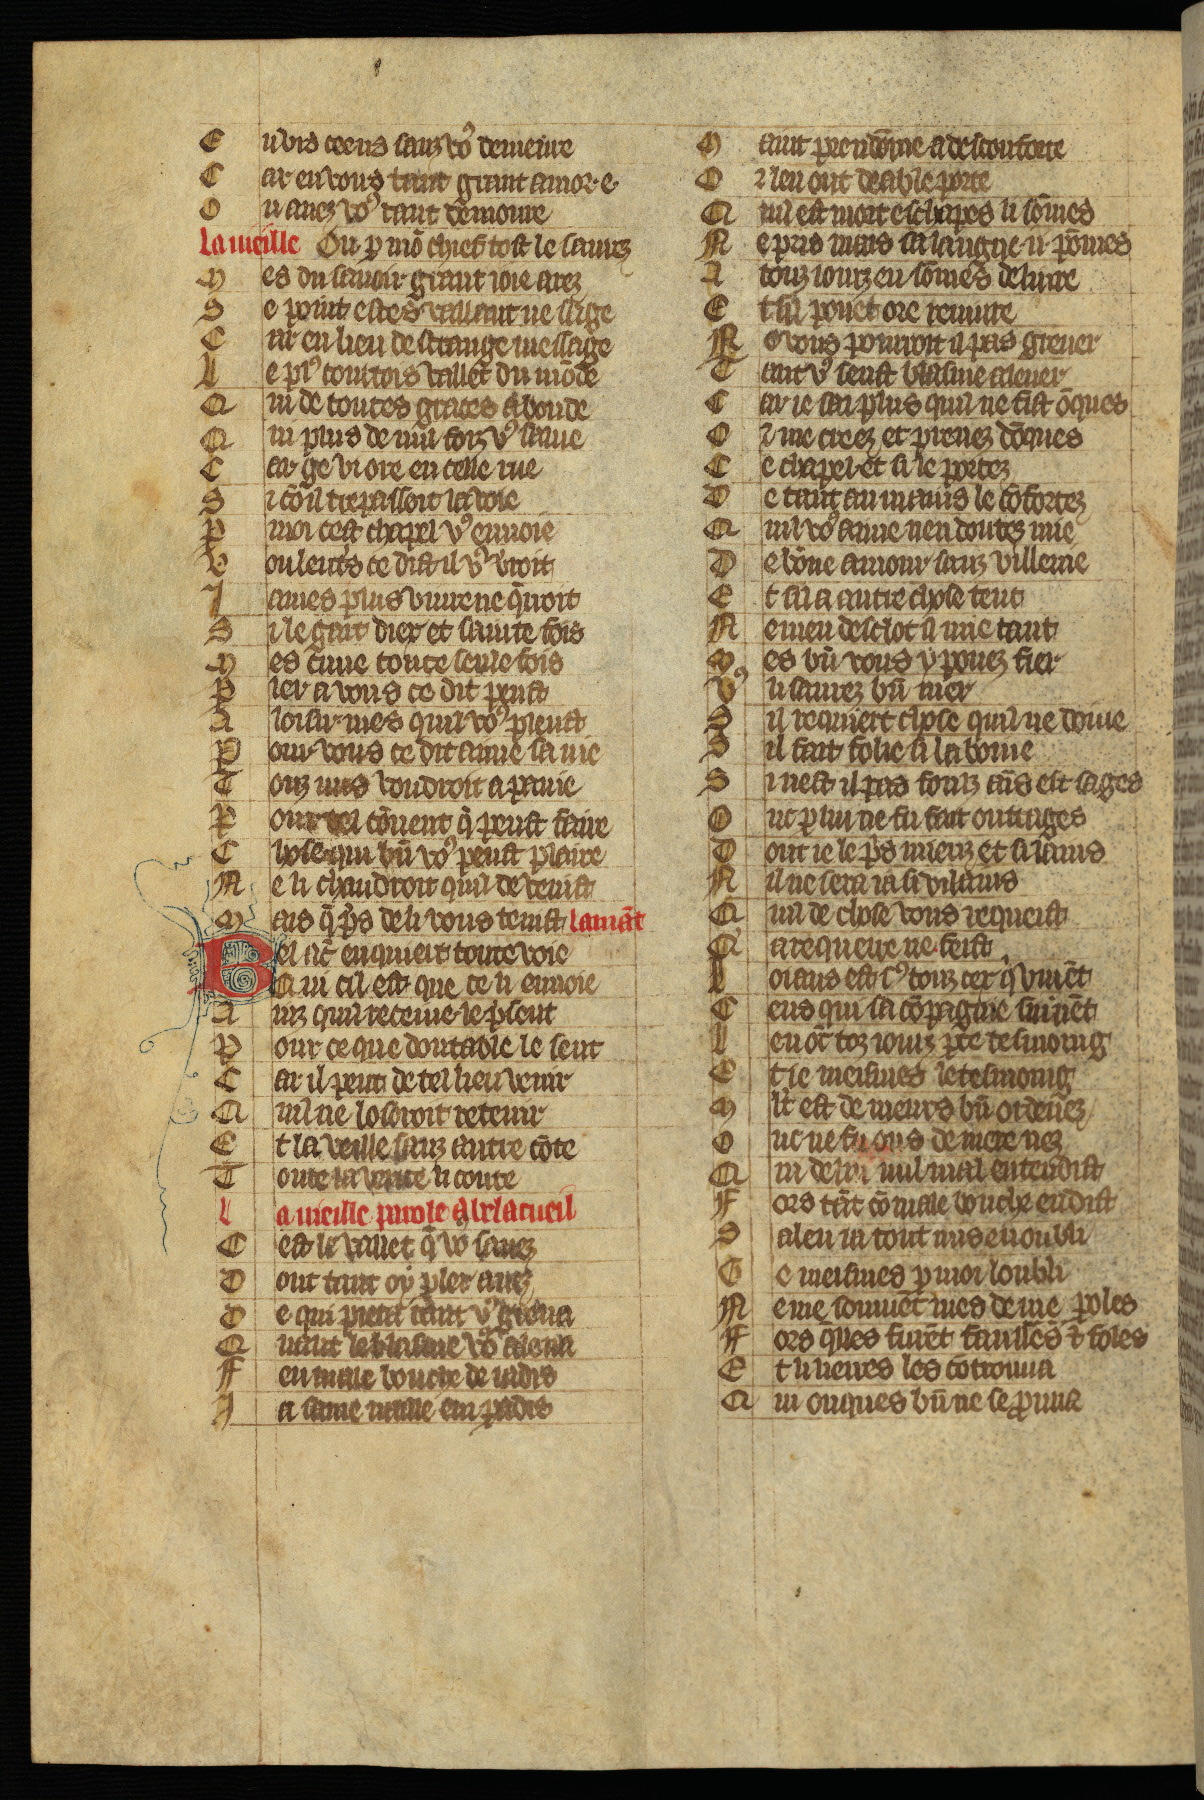 E nvois ceens sanz vo9 demeure
C ar en vous tant grant amor e
O u auez vo9 tant demoure
La uieille Ou p mō chief tost le saurez
M es du sauoir grant ioie arez
S e point estes vaillant ne sage
C ar en lieu destrange message
L e pl9 courtois vallet du mōde
Q ui de toutes graces abonde
Q ui plus de mil foiz v9 salue
C ar ge vi ore en celle rue
S i cō il trepassoit la voie
P moi cest chapel v9 enuoie
V oulentˢs ce dist il v9 verroit
J ames plus viure ne q̄rroit
S i le gart diex et sainte fois
M es cune toute seule fois
P ler a vous ce dit peust
A loisir mes quil vo9 pleust
P our vous ce dit aime sa uie
T ouz nus voudroit a pauie
P our tel cōuent q̄ peust faire
C hose qui bn̄ vo9 peust plaire
N e li chaudroit quil deuenist
M ais q̄ p̄s de li vous tenist lamāt
B el ac̄ enquiert toute voie
Q ui cil est que ce li enuoie
A inz quil receiue le p̄sent
P our ce que doutable le sent
C ar il peut de tel lieu venir
Q uil ne losoroit retenir
E t la veille sanz autre cōte
T oute la verite li conte
L a uieille parole a belacueil
C est le vallet q̄ vo9 sauez
D ont tant oy pler auez
D e qui pieca tant v9 greua
Q uant le blasme vo9 aleua
F eu male bouche de iadis
J a lame naille em padis
M aint preudōme a desconforte
O r leu ont deable porte
Q uil est mort eschapes li sōmes
N e pris mais sa langue ii pōmes
A touz iourz en sōmes deliure
E t sil pouet ore reuiure
N e vous pourroit il pas greuer
T ant v9 seust blasme aleuer
C ar ie sai plus quil ne fist ōques
O r me creez et prenez dōques
C e chapel et si le portez
D e tant au mains le cōfortez
Q uil vo9 aime nen doutez mie
D e bōne amour sanz villenie
E t sil a autre chose tent
N e men desclot il mie tant
M es bn̄ vous y pouez fier
V9 li saurez bn̄ nier
S il requiert chose quil ne doiue
S il fait folie si la boiue
S i nest il pas fouz ains est sages
O nc p lui ne fu fait outrages
D ont ie le p̄s mieuz et si laims
N il ne sera ia si vilains
Q uil de chose vous requeist
Q a requerre ne feist
L oiaus est s9 touz cer q̄ viuēt
C eus qui sa cōpagnie suiuēt
L en ōt toz iourz pte tesmoing
E t ie meismes le tesmoing
M lt est de meurs bn̄ ordenez
O nc ne fu ons de mere nez
Q ui de lui nul mal entendist
F ors tāt cō male bouche en dist
S a len ia tout mis en oubli
G e meismes p moi loubli
N e me souuēt mes de me poles
F ors q̄lles furēt fausses & foles
E t li lierres les cōtrouua
Q ui onques bn̄ ne se prouua